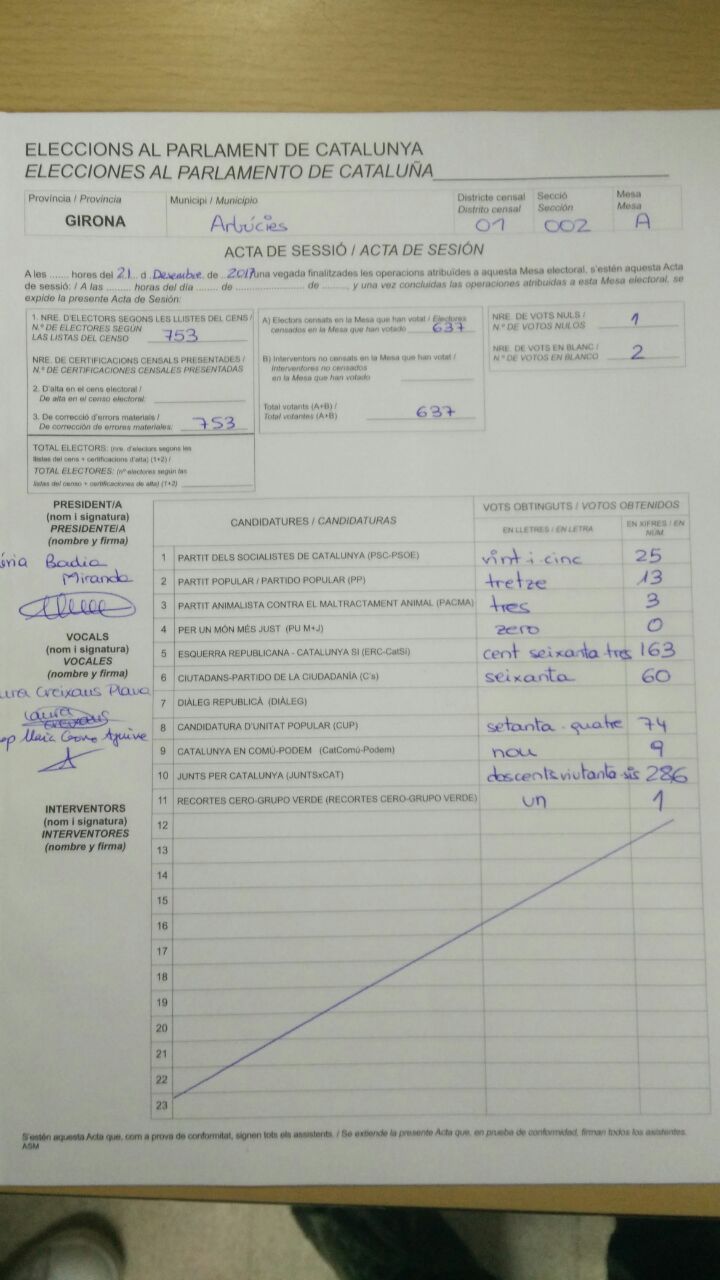 ELECCIONS AL PARLAMENT DE CATALUNYA
ELECCIONES AL PARLAMENTO DE CATALUÑA
Província / Provincia
GIRONA
Municipi / Municipio
Arbúcies
Districte censal
Distrito censal
01
Secció
Sección
002
Mesa
Mesa
A
ACTA DE SESSIÓ / ACTA DE SESIÓN
A les ....... hores del 21 d Desembre de 2017 una vegada finalitzades les operacions atribuïdes a aquesta Mesa electoral, s'estén aquesta Acta
de sessió: / A las ........ horas del día ....... de .................. de ......., y una vez concluidas las operaciones atribuidas a esta Mesa electoral, se
expide la presente Acta de Sesión:
1. NRE. D'ELECTORS SEGONS LES LLISTES DEL CENS /
N.º DE ELECTORES SEGÚN
LAS LISTAS DEL CENSO 753
NRE. DE CERTIFICACIONS CENSALS PRESENTADES /
N.º DE CERTIFICACIONES CENSALES PRESENTADAS
2. D'alta en el cens electoral /
De alta en el censo electoral:
3. De correcció d'errors materials /
De corrección de errores materiales: 753
TOTAL ELECTORS: (nre. d'electors segons les
llistes del cens + certificacions d'alta) (1+2) /
TOTAL ELECTORES: (nº electores según las
listas del censo + certificaciones de alta) (1+2)
A) Electors censats en la Mesa que han votat / Electores
censados en la Mesa que han votado 637
B) Interventors no censats en la Mesa que han votat /
Interventores no censados
en la Mesa que han votado
Total votants (A+B) /
Total votantes (A+B) 637
NRE. DE VOTS NULS /
N.º DE VOTOS NULOS 1
NRE. DE VOTS EN BLANC /
N.º DE VOTOS EN BLANCO 2
PRESIDENT/A
(nom i signatura)
PRESIDENTE/A
(nombre y firma)
Badia
Miranda
VOCALS
(nom i signatura)
VOCALES
(nombre y firma)
Creixans Plava
Laura
Creixans
Maria
INTERVENTORS
(nom i signatura)
INTERVENTORES
(nombre y firma)
CANDIDATURES / CANDIDATURAS
VOTS OBTINGUTS / VOTOS OBTENIDOS
EN LLETRES / EN LETRA
EN XIFRES / EN NÚM.
1 PARTIT DELS SOCIALISTES DE CATALUNYA (PSC-PSOE) vint-i-cinc 25
2 PARTIT POPULAR / PARTIDO POPULAR (PP) tretze 13
3 PARTIT ANIMALISTA CONTRA EL MALTRACTAMENT ANIMAL (PACMA) tres 3
4 PER UN MÓN MÉS JUST (PU M+J) zero 0
5 ESQUERRA REPUBLICANA - CATALUNYA SÍ (ERC-CatSí) cent seixanta-tres 163
6 CIUTADANS-PARTIDO DE LA CIUDADANÍA (C's) seixanta 60
7 DIÀLEG REPUBLICÀ (DIÀLEG)
8 CANDIDATURA D'UNITAT POPULAR (CUP) setanta-quatre 74
9 CATALUNYA EN COMÚ-PODEM (CatComú-Podem) nou 9
10 JUNTS PER CATALUNYA (JUNTSxCAT) doscents viutanta-sis 286
11 RECORTES CERO-GRUPO VERDE (RECORTES CERO-GRUPO VERDE) un 1
12
13
14
15
16
17
18
19
20
21
22
23
S'estén aquesta Acta que, com a prova de conformitat, signen tots els assistents. / Se extiende la presente Acta que, en prueba de conformidad, firman todos los asistentes.
ASM